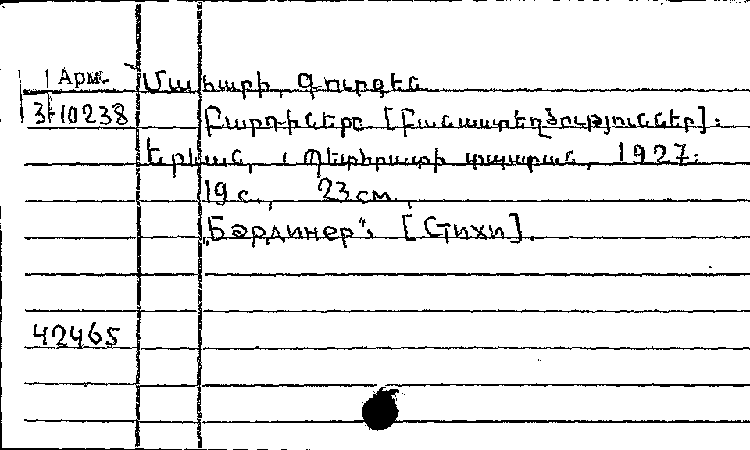 Арм. Մահարի, Գուրգեն
3-10238 Բարդիները [Բանաստեղծություններ]:
Երևան, Պետհրատի տպարան, 1927:
19 с., 23 см.
„Бардинер“. [Стихи].
42465